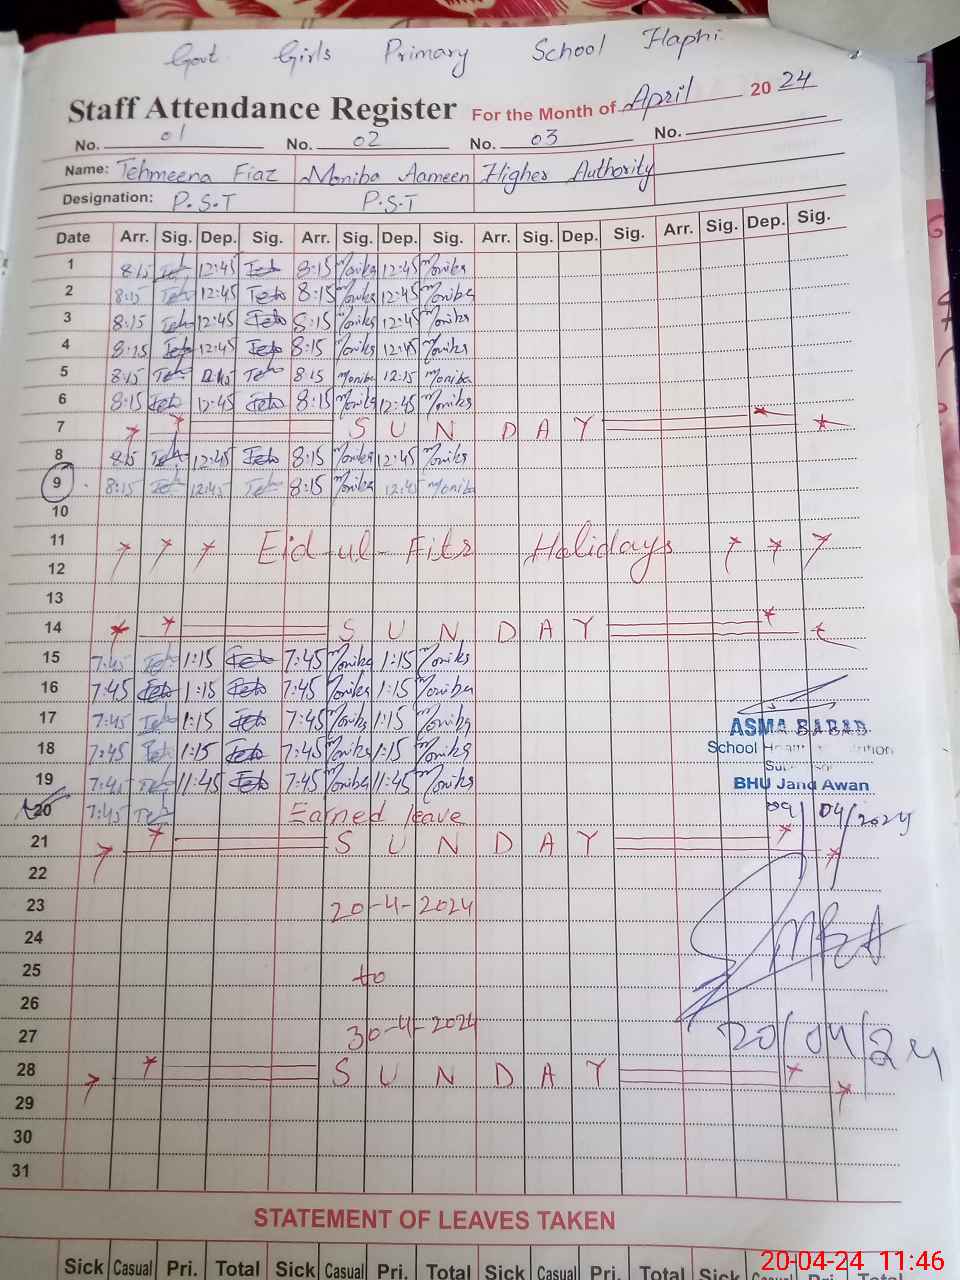 Govt. Girls Primary School Haphi
Staff Attendance Register For the Month of April 2024
No. 01 No. 02 No. 03 No.
Name: Tehmeena Fiaz Moniba Aameen Higher Authority
Designation: P.S.T P.S.T
Date Arr. Sig. Dep. Sig. Arr. Sig. Dep. Sig. Arr. Sig. Dep. Sig. Arr. Sig. Dep. Sig.
1 8:15 Teh 12:45 Teh 8:15 Moniba 12:45 Moniba
2 8:15 Teh 12:45 Teh 8:15 Moniba 12:45 Moniba
3 8:15 Teh 12:45 Teh 8:15 Moniba 12:45 Moniba
4 8:15 Teh 12:45 Teh 8:15 Moniba 12:45 Moniba
5 8:15 Teh 12:45 Teh 8:15 Moniba 12:15 Moniba
6 8:15 Teh 12:45 Teh 8:15 Moniba 12:45 Moniba
7 SUNDAY
8 8:15 Teh 12:45 Teh 8:15 Moniba 12:45 Moniba
9 8:15 Teh 12:45 Teh 8:15 Moniba 12:45 Moniba
10
11 Eid-ul-Fitr Holidays
12
13
14 SUNDAY
15 7:45 Teh 1:15 Teh 7:45 Moniba 1:15 Moniba
16 7:45 Teh 1:15 Teh 7:45 Moniba 1:15 Moniba
17 7:45 Teh 1:15 Teh 7:45 Moniba 1:15 Moniba
ASMA BABAR
18 7:45 Teh 1:15 Teh 7:45 Moniba 1:15 Moniba
School Health
19 7:45 Teh 11:45 Teh 7:45 Moniba 11:45 Moniba
BHU Jand Awan
20 7:45 Teh Earned leave
09/04/2024
21 SUNDAY
22
23 20-4-2024
24
25 to
26
27 30-4-2024
20/04/24
28 SUNDAY
29
30
31
STATEMENT OF LEAVES TAKEN
Sick Casual Pri. Total Sick Casual Pri. Total Sick Casual Pri. Total Sick Casual Pri. Total
20-04-24 11:46